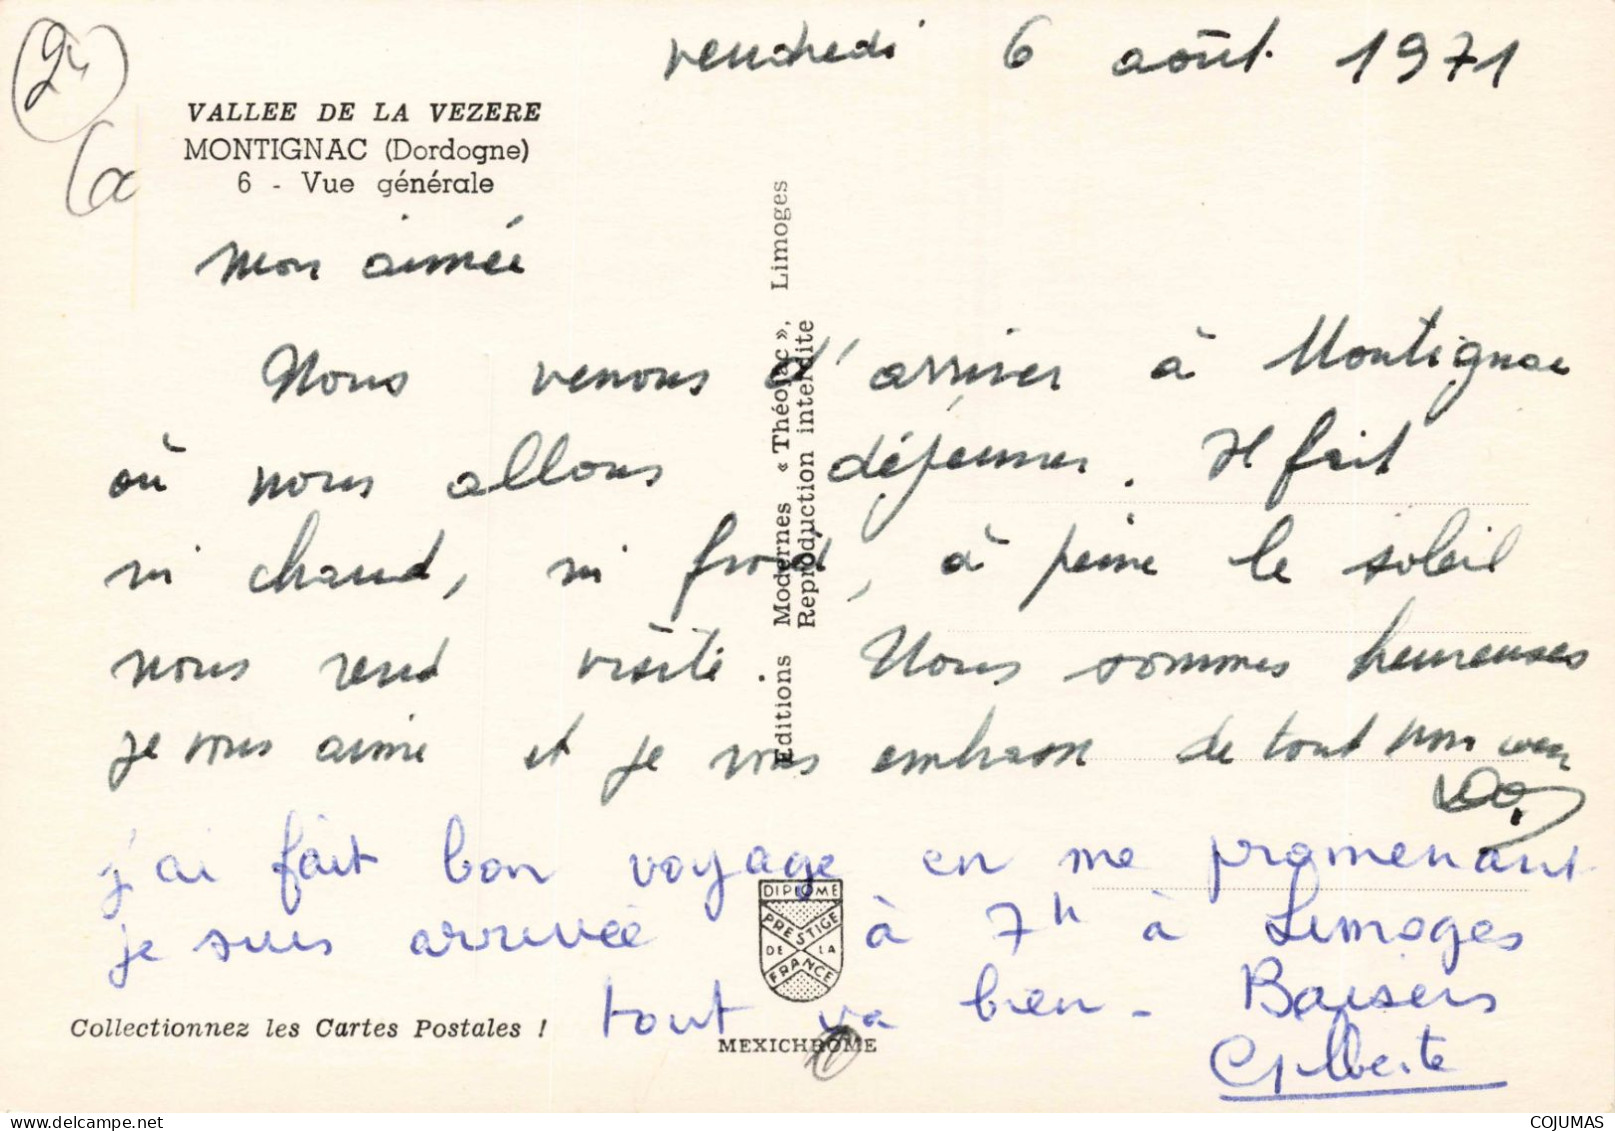 24
vendredi 6 août 1971
VALLEE DE LA VEZERE
MONTIGNAC (Dordogne)
6 - Vue générale
mon aimée
Nous venons d'arriver à Montignac
où nous allons déjeuner. Il fait
ni chaud, ni froid, à peine le soleil
nous rend visite. Nous sommes heureuses
je vous aime et je vous embrasse de tout mon cœur
j'ai fait bon voyage en me promenant
je suis arrivée à 7h à Limoges
tout va bien - Baisers
Gilberte
Editions Modernes « Théojac », Limoges
Reproduction interdite
DIPLOME
PRESTIGE
DE LA
FRANCE
MEXICHROME
Collectionnez les Cartes Postales !
COJUMAS